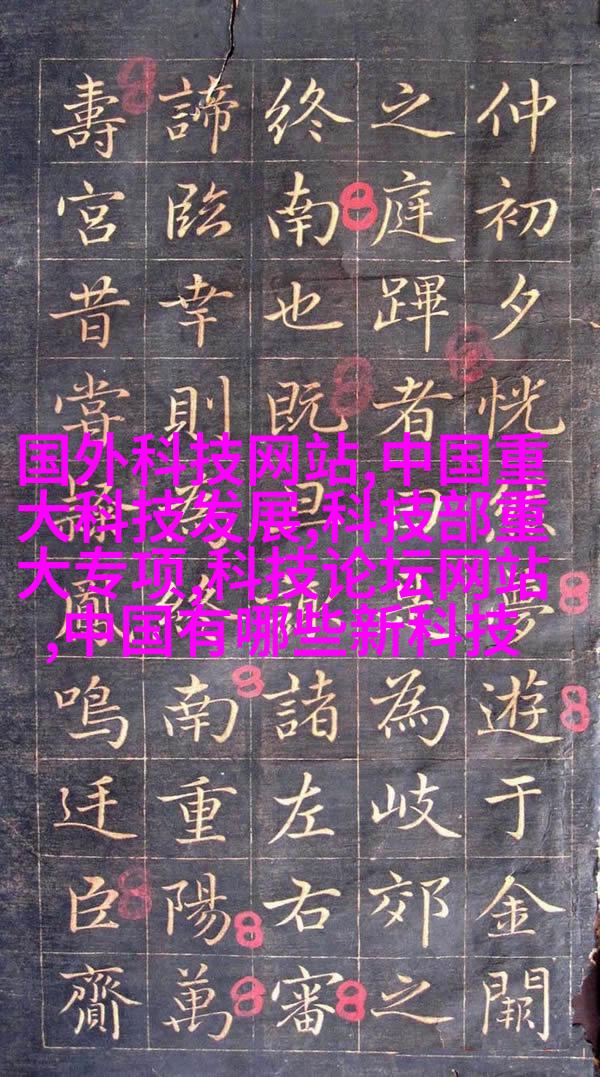 仲初夕恍夢遊于金闕
之庭蹕者曰為岐郊之
終南也既諸左右審
諦臨幸則終南重陽萬
壽宮昔嘗鳳鳴廷臣齎
国外科技网站,中国重
大科技发展,科技部重
大专项,科技论坛网站
,中国有哪些新科技